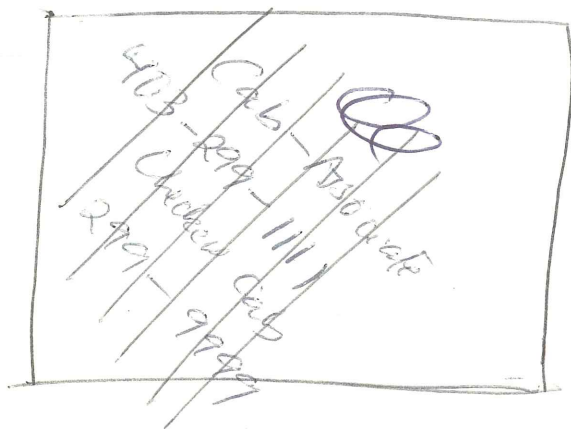 Cab - Associate
403-299-1111
Checker Cab
299-9999